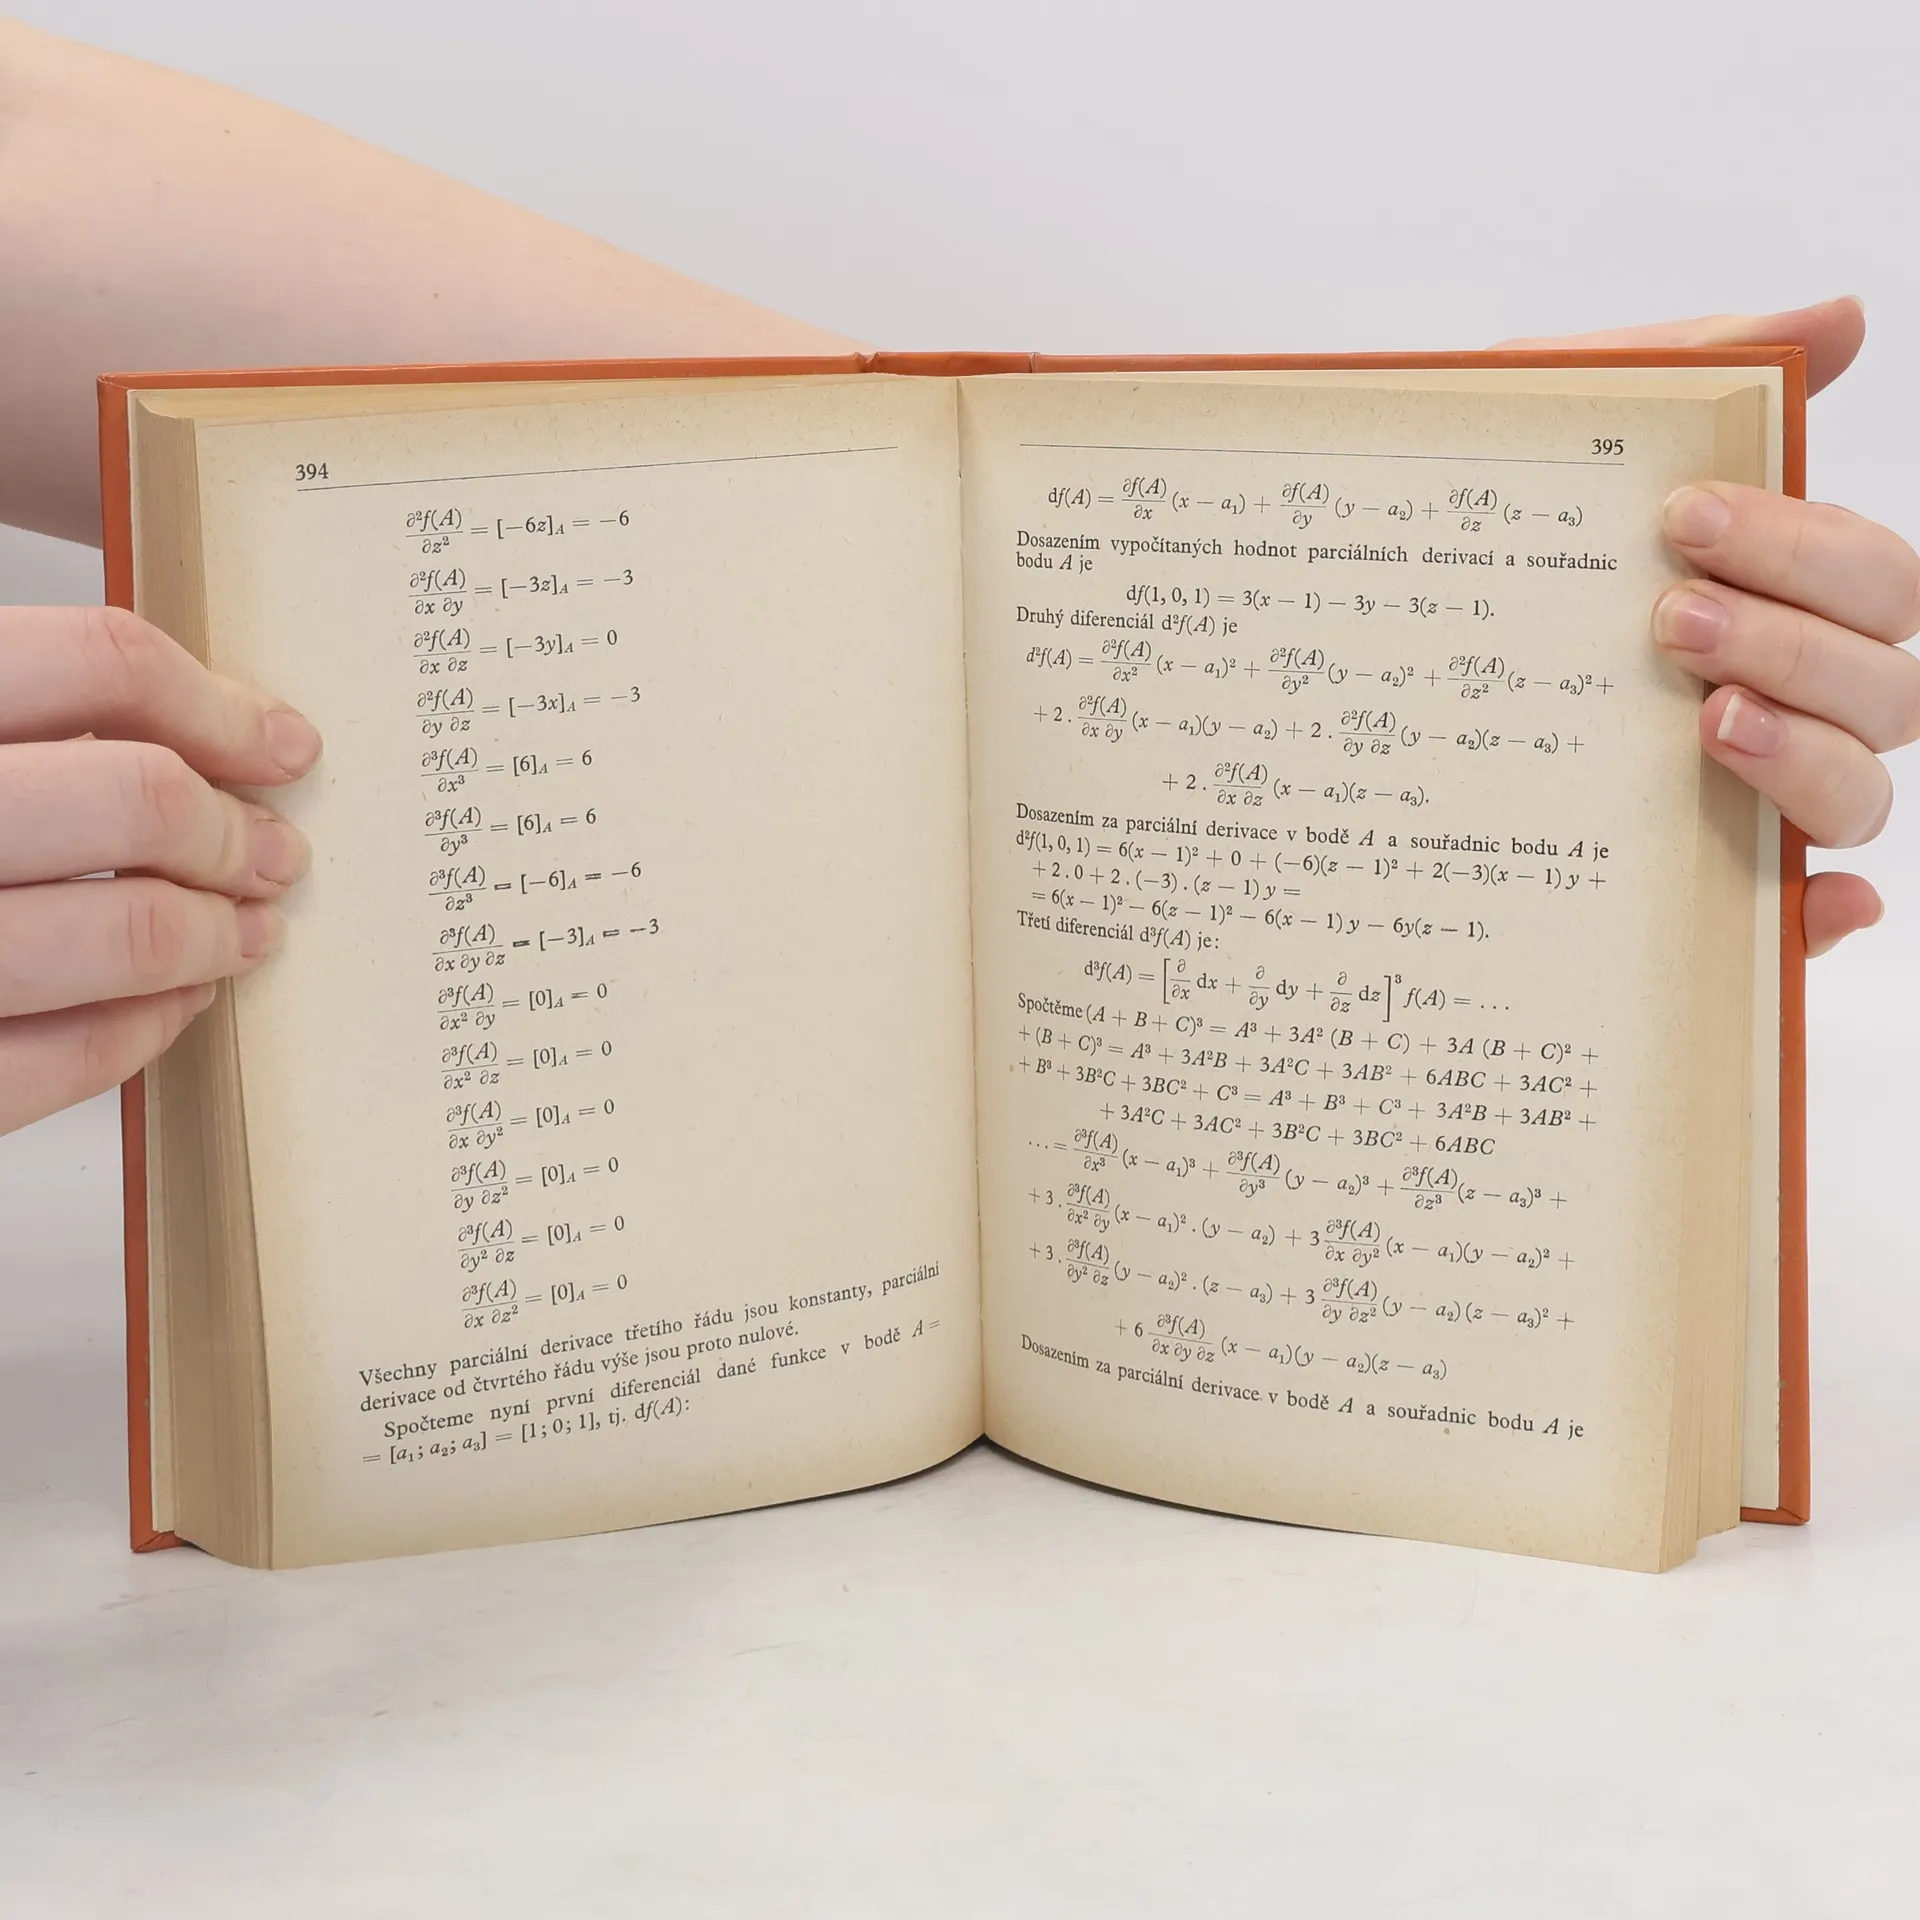 394
∂²f(A)/∂z² = [−6z]_A = −6
∂²f(A)/∂x ∂y = [−3z]_A = −3
∂²f(A)/∂x ∂z = [−3y]_A = 0
∂²f(A)/∂y ∂z = [−3x]_A = −3
∂³f(A)/∂x³ = [6]_A = 6
∂³f(A)/∂y³ = [6]_A = 6
∂³f(A)/∂z³ = [−6]_A = −6
∂³f(A)/∂x ∂y ∂z = [−3]_A = −3
∂³f(A)/∂x² ∂y = [0]_A = 0
∂³f(A)/∂x² ∂z = [0]_A = 0
∂³f(A)/∂x ∂y² = [0]_A = 0
∂³f(A)/∂y ∂z² = [0]_A = 0
∂³f(A)/∂y² ∂z = [0]_A = 0
∂³f(A)/∂x ∂z² = [0]_A = 0
Všechny parciální derivace třetího řádu jsou konstanty, parciální
derivace od čtvrtého řádu výše jsou proto nulové.
Spočteme nyní první diferenciál dané funkce v bodě A =
= [a₁; a₂; a₃] = [1; 0; 1], tj. df(A):
395
df(A) = ∂f(A)/∂x (x − a₁) + ∂f(A)/∂y (y − a₂) + ∂f(A)/∂z (z − a₃)
Dosazením vypočítaných hodnot parciálních derivací a souřadnic
bodu A je
df(1, 0, 1) = 3(x − 1) − 3y − 3(z − 1).
Druhý diferenciál d²f(A) je
d²f(A) = ∂²f(A)/∂x² (x − a₁)² + ∂²f(A)/∂y² (y − a₂)² + ∂²f(A)/∂z² (z − a₃)² +
+ 2 . ∂²f(A)/∂x ∂y (x − a₁)(y − a₂) + 2 . ∂²f(A)/∂y ∂z (y − a₂)(z − a₃) +
+ 2 . ∂²f(A)/∂x ∂z (x − a₁)(z − a₃).
Dosazením za parciální derivace v bodě A a souřadnic bodu A je
d²f(1, 0, 1) = 6(x − 1)² + 0 + (−6)(z − 1)² + 2(−3)(x − 1) y +
+ 2 . 0 + 2 . (−3) . (z − 1) y =
= 6(x − 1)² − 6(z − 1)² − 6(x − 1) y − 6y(z − 1).
Třetí diferenciál d³f(A) je:
d³f(A) = [∂/∂x dx + ∂/∂y dy + ∂/∂z dz]³ f(A) = ...
Spočtěme (A + B + C)³ = A³ + 3A² (B + C) + 3A (B + C)² +
+ (B + C)³ = A³ + 3A²B + 3A²C + 3AB² + 6ABC + 3AC² +
+ B³ + 3B²C + 3BC² + C³ = A³ + B³ + C³ + 3A²B + 3AB² +
+ 3A²C + 3AC² + 3B²C + 3BC² + 6ABC
... = ∂³f(A)/∂x³ (x − a₁)³ + ∂³f(A)/∂y³ (y − a₂)³ + ∂³f(A)/∂z³ (z − a₃)³ +
+ 3 . ∂³f(A)/∂x² ∂y (x − a₁)² . (y − a₂) + 3 ∂³f(A)/∂x ∂y² (x − a₁)(y − a₂)² +
+ 3 . ∂³f(A)/∂y² ∂z (y − a₂)² . (z − a₃) + 3 ∂³f(A)/∂y ∂z² (y − a₂) (z − a₃)² +
+ 6 ∂³f(A)/∂x ∂y ∂z (x − a₁)(y − a₂)(z − a₃)
Dosazením za parciální derivace v bodě A a souřadnic bodu A je